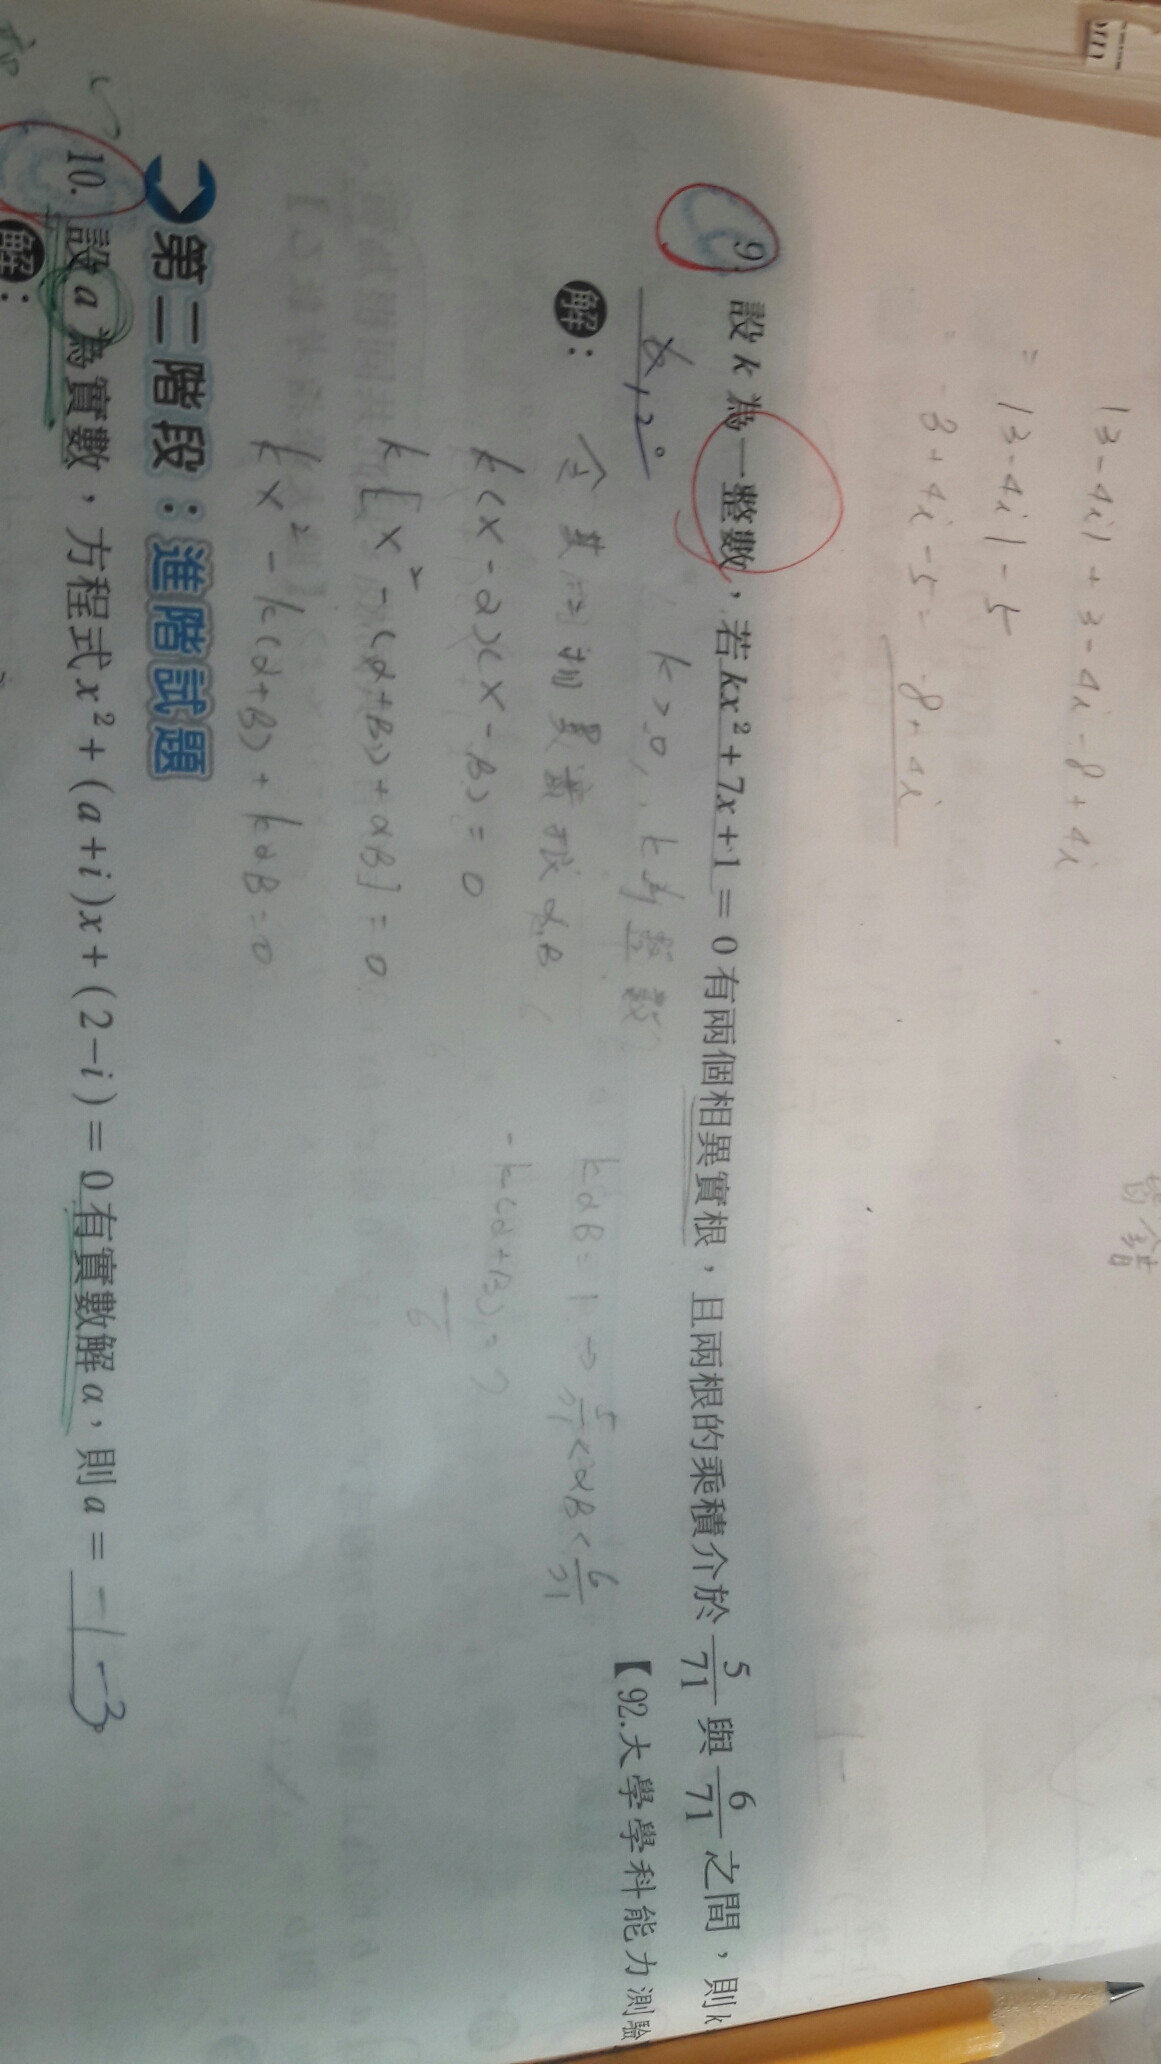 |3-4i|+3-4i-8+4i
=|3-4i|-5
-8+4i-5=-8+4i
皆錯
9. 設k為一整數，若kx²+7x+1=0有兩個相異實根，且兩根的乘積介於 5/71 與 6/71 之間，則k
【92.大學學科能力測驗
12。
k>0, k為整數?
解：
令其两相異實根α,B
k(x-α)(x-B)=0
k[x²-(α+B)+αB]=0
kx²-k(α+B)+kαB=0
kαB=1 → 5/71<αB<6/71
-k(α+B)=7
第二階段：進階試題
10. 設a為實數，方程式x²+(a+i)x+(2-i)=0有實數解α，則a= -1 -3
解：